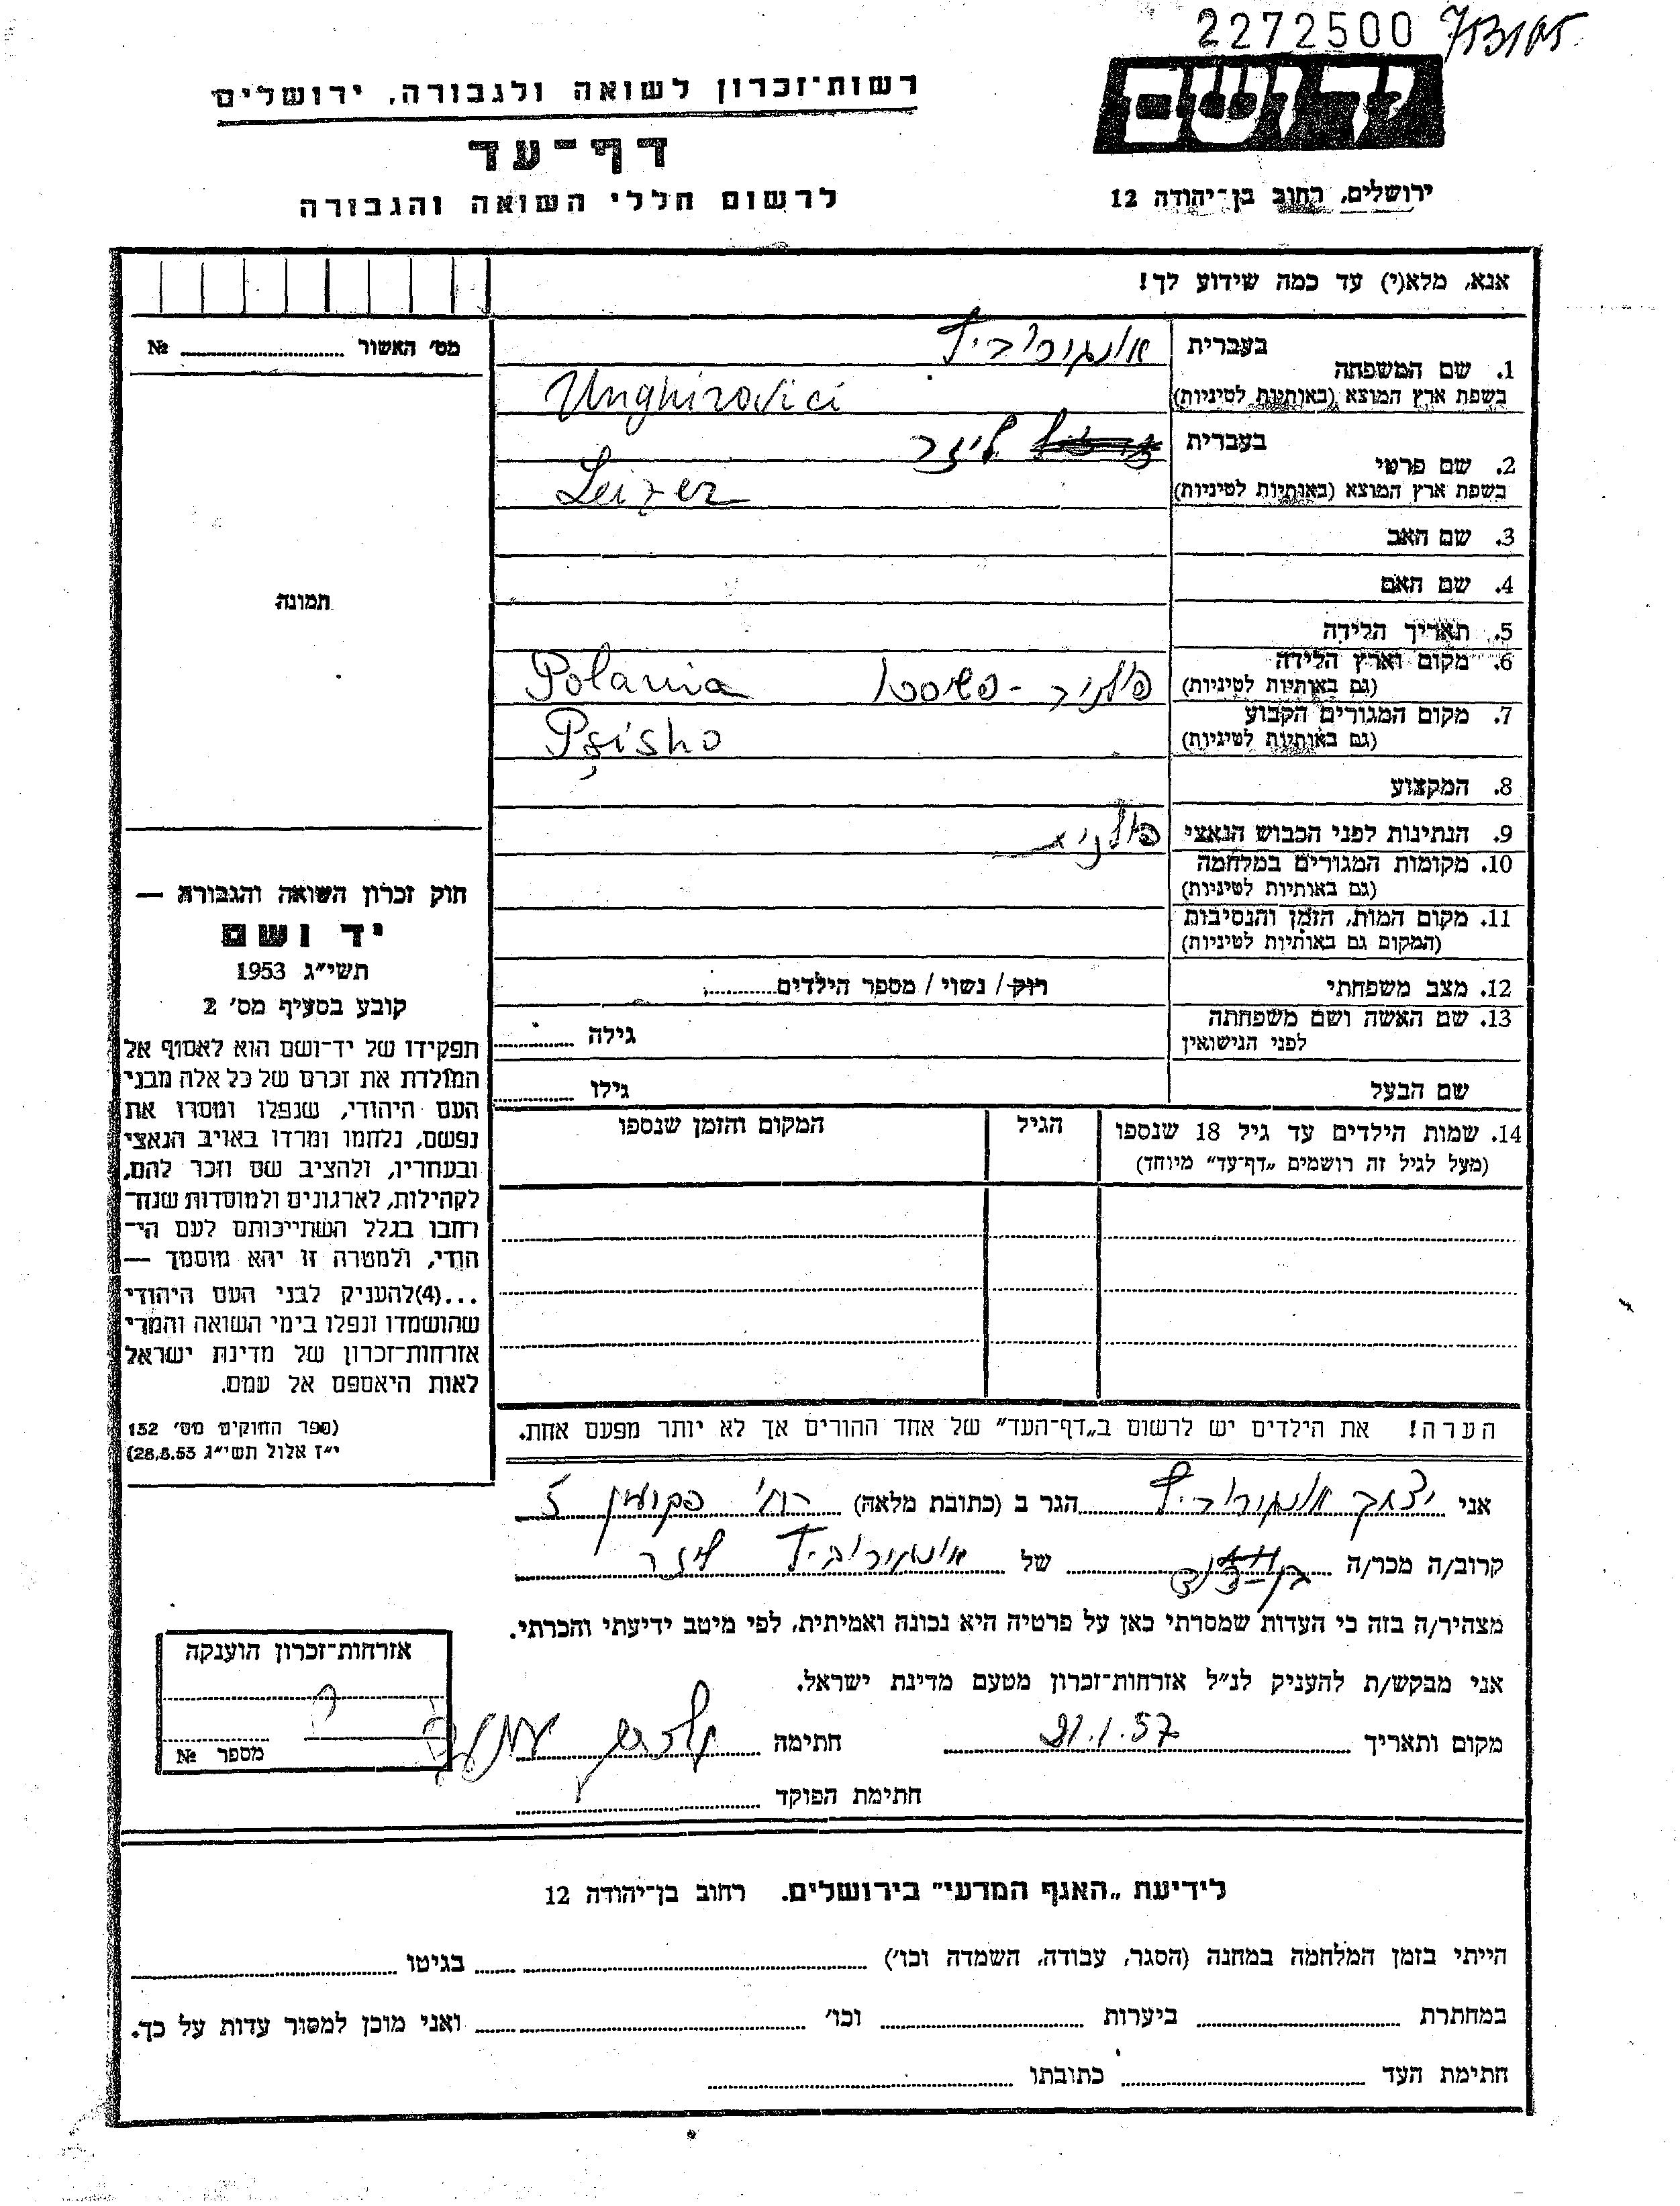 2272500
רשות־זכרון לשואה ולגבורה, ירושלים
יד ושם
דף־עד
לרשום חללי השואה והגבורה
ירושלים, רחוב בן־יהודה 12
אנא, מלא(י) עד כמה שידוע לך!
מס׳ האשור № 
1. שם המשפחה
בעברית אונגירוביץ
בשפת ארץ המוצא (באותיות לטיניות) Unghirovici
2. שם פרטי
בעברית ליזר
בשפת ארץ המוצא (באותיות לטיניות) Leizer
3. שם האב
4. שם האם
5. תאריך הלידה
6. מקום וארץ הלידה
(גם באותיות לטיניות) פולניה - Polania
7. מקום המגורים הקבוע
(גם באותיות לטיניות) Psisho
8. המקצוע
9. הנתינות לפני הכבוש הנאצי פולנית
10. מקומות המגורים במלחמה
(גם באותיות לטיניות)
11. מקום המות, הזמן והנסיבות
(המקום גם באותיות לטיניות)
12. מצב משפחתי רווק / נשוי / מספר הילדים
13. שם האשה ושם משפחתה
לפני הנישואין גילה
שם הבעל גילו
14. שמות הילדים עד גיל 18 שנספו הגיל המקום והזמן שנספו
(מעל לגיל זה רושמים „דף־עד״ מיוחד)
תמונה
חוק זכרון השואה והגבורה —
יד ושם
תשי״ג 1953
קובע בסעיף מס׳ 2
תפקידו של יד־ושם הוא לאסוף אל
המולדת את זכרם של כל אלה מבני
העם היהודי, שנפלו ומסרו את
נפשם, נלחמו ומרדו באויב הנאצי
ובעוזריו, ולהציב שם וזכר להם,
לקהילות, לארגונים ולמוסדות שנח־
רבו בגלל השתייכותם לעם הי־
הודי, ולמטרה זו יהא מוסמך —
...(4) להעניק לבני העם היהודי
שהושמדו ונפלו בימי השואה והמרי
אזרחות־זכרון של מדינת ישראל
לאות היאספם אל עמם.
(ספר החוקים מס׳ 132
י״ז אלול תשי״ג 28.8.53)
הערה! את הילדים יש לרשום ב„דף־העד״ של אחד ההורים אך לא יותר מפעם אחת.
אני יצחק אונגירוביץ הגר ב (כתובת מלאה) 5
קרוב/ה מכר/ה של אונגירוביץ ליזר
מצהיר/ה בזה כי העדות שמסרתי כאן על פרטיה היא נכונה ואמיתית, לפי מיטב ידיעתי והכרתי.
אני מבקש/ת להעניק לנ״ל אזרחות־זכרון מטעם מדינת ישראל.
מקום ותאריך 21.1.57 חתימה
חתימת הפוקד
אזרחות־זכרון הוענקה
מספר №
לידיעת „האגף המדעי״ בירושלים, רחוב בן־יהודה 12
הייתי בזמן המלחמה במחנה (הסגר, עבודה, השמדה וכו׳) בגיטו
במחתרת ביערות וכו׳ ואני מוכן למסור עדות על כך.
חתימת העד כתובתו